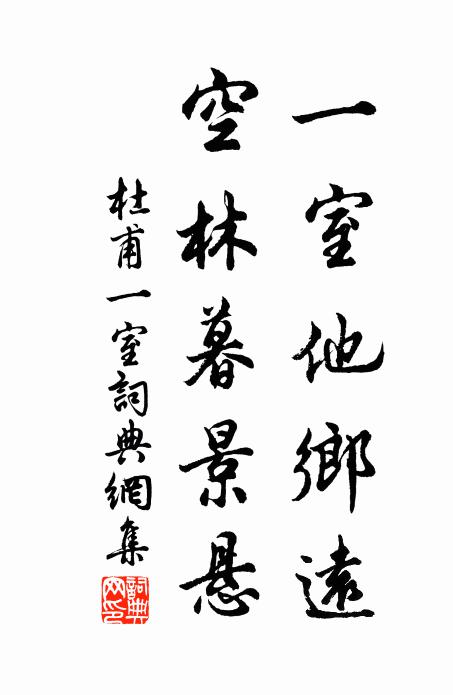 一室他鄉遠
空林暮景悬
杜甫一室詞典網集